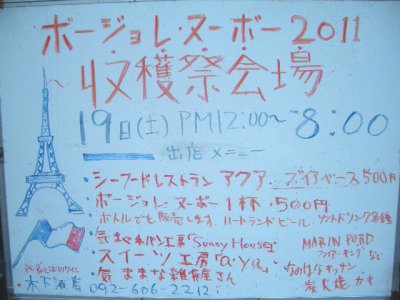 ボージョレ・ヌーボー2011
収穫祭会場
19日(土) PM12:00〜8:00
出店メニュー
・シーフードレストラン アクア ブイヤベース 500円
・ボージョレ・ヌーボー 1杯 500円
ボトルでも販売します。ハートランドビール ソフトドリンク各種
パン工房「Sunny House」
・スイーツ工房「a・ya」
・気ままな雑貨屋さん
MARIN PORD
など
炭火焼 カキ
木下酒店 092-606-2212